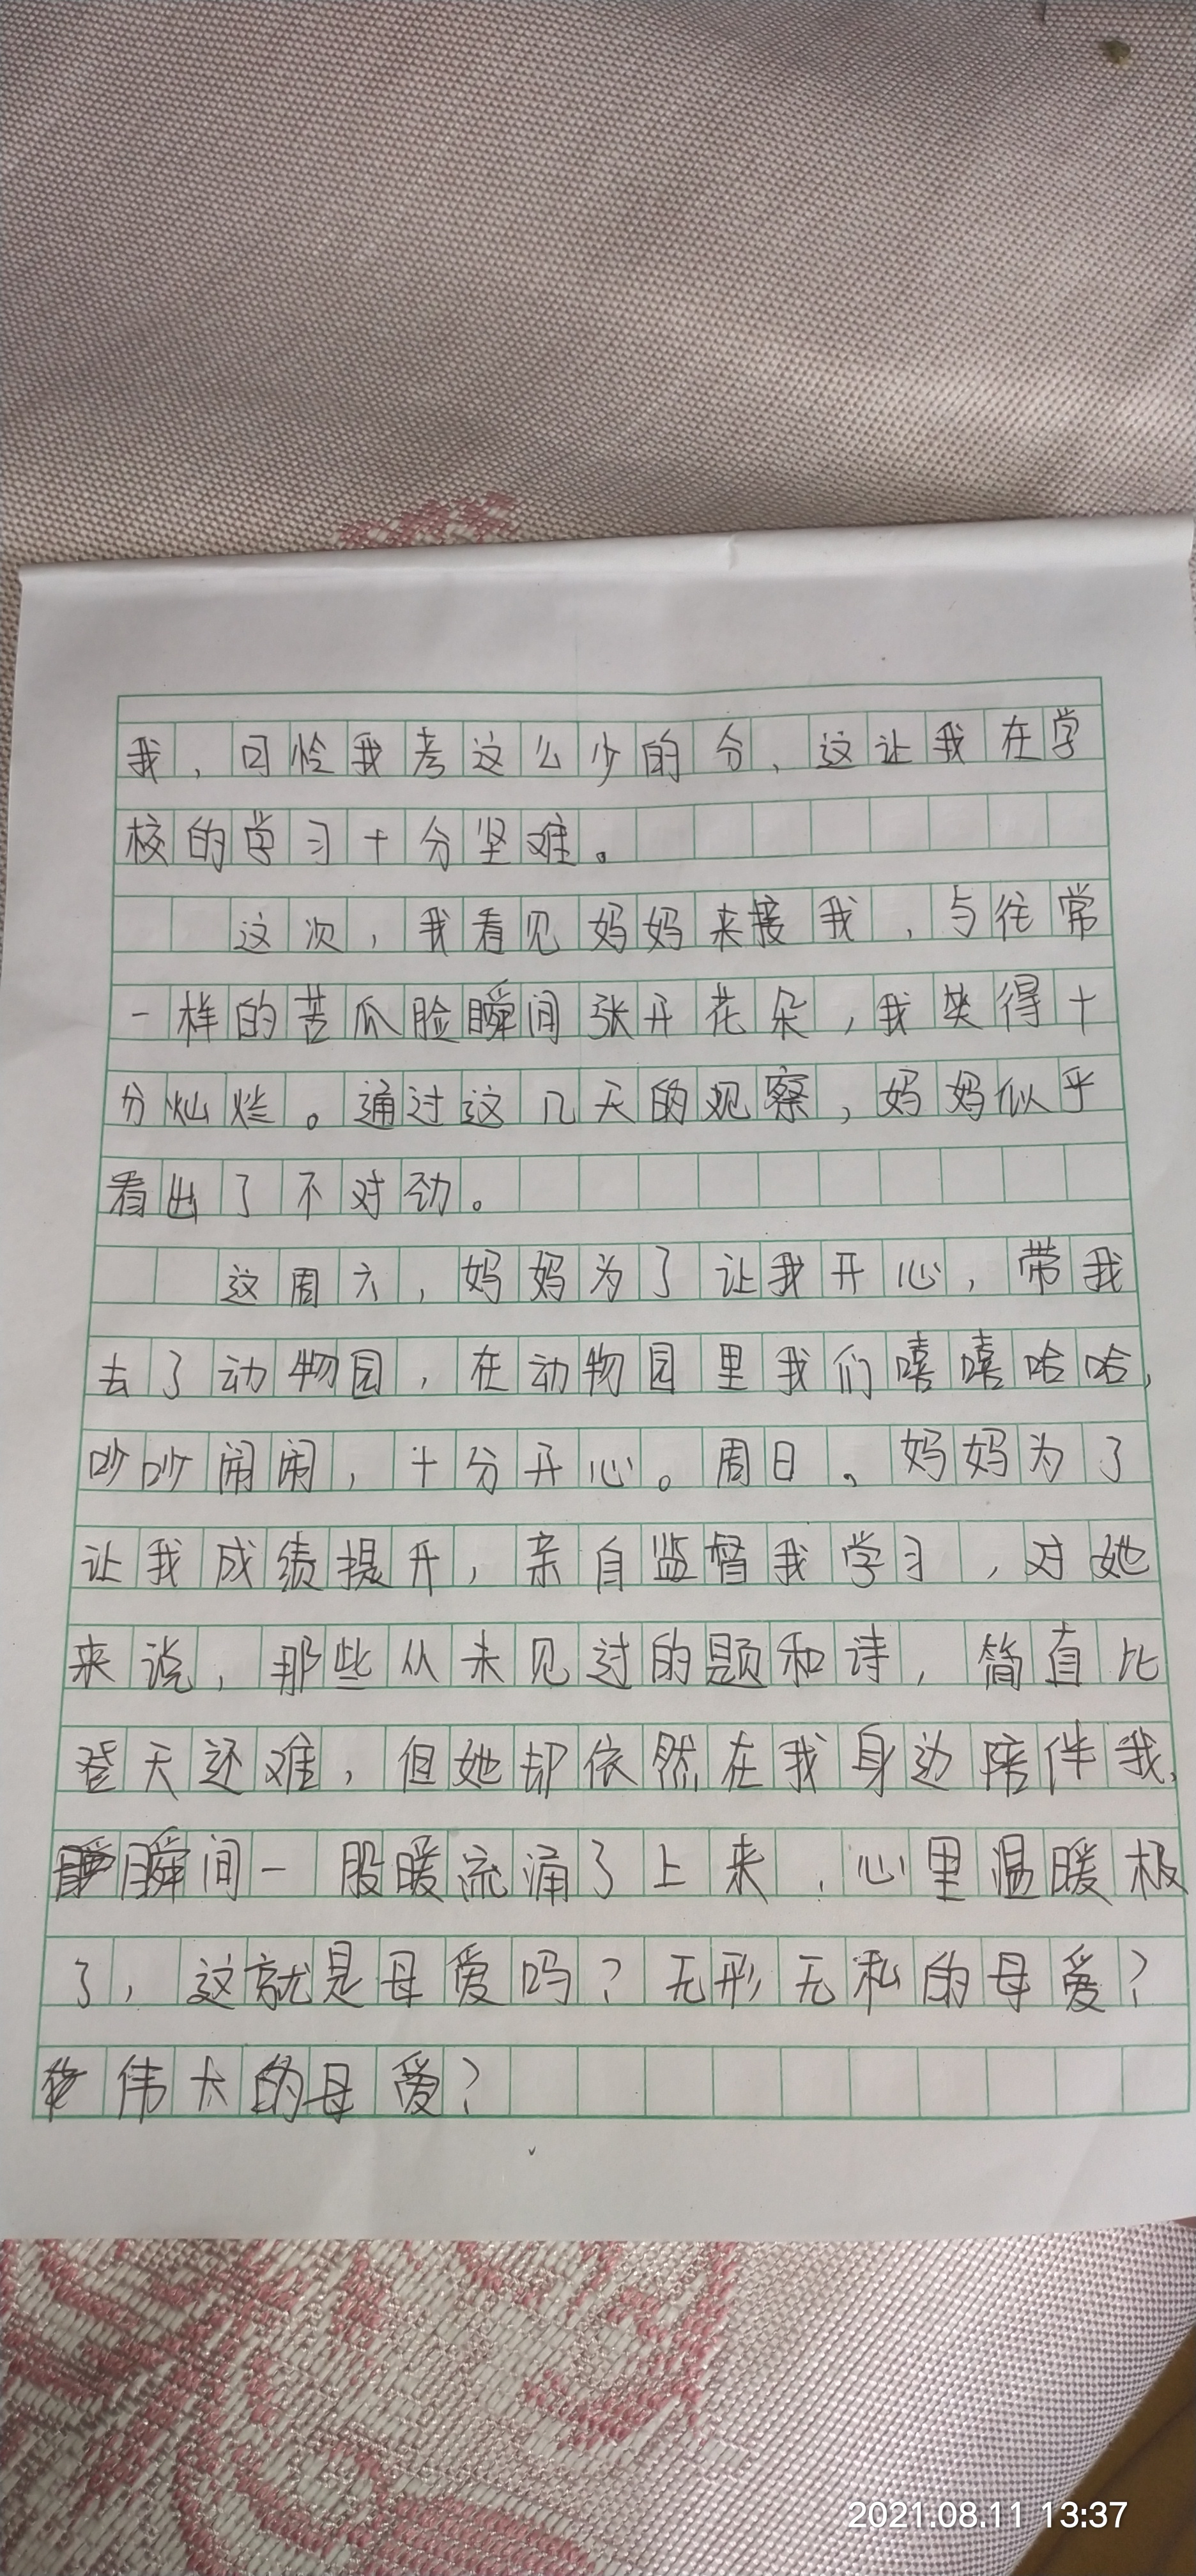 我，可怜我考这么少的分，这让我在学
校的学习十分坚难。
这次，我看见妈妈来接我，与往常
一样的苦瓜脸瞬间张开花朵，我笑得十
分灿烂。通过这几天的观察，妈妈似乎
看出了不对劲。
这周六，妈妈为了让我开心，带我
去了动物园，在动物园里我们嘻嘻哈哈，
吵吵闹闹，十分开心。周日。妈妈为了
让我成绩提升，亲自监督我学习，对她
来说，那些从未见过的题和诗，简直比
登天还难，但她却依然在我身边陪伴我，
瞬间一股暖流涌了上来，心里温暖极
了，这就是母爱吗？无形无私的母爱？
伟大的母爱？
2021.08.11 13:37